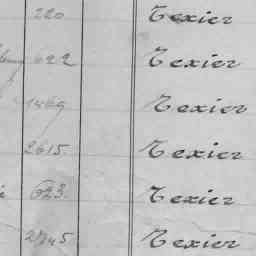 220 Texier
622 Texier
1469 Texier
2615. Texier
623. Texier
2745 Texier